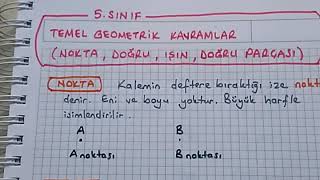 5. SINIF
TEMEL GEOMETRİK KAVRAMLAR
(NOKTA, DOĞRU, IŞIN, DOĞRU PARÇASI)
NOKTA Kalemin deftere bıraktığı ize nokt
denir. Eni ve boyu yoktur. Büyük harfle
isimlendirilir.
A B
A noktası B noktası